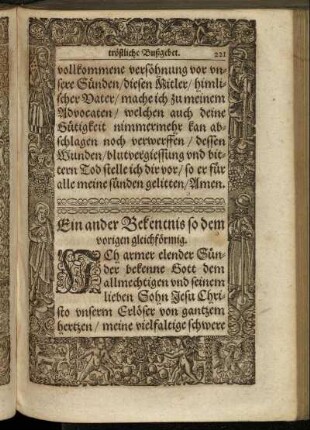 tröstliche Bußgebet. 221
vollkommene versöhnung vor vn-
sere Sünden/ diesen Mitler/ himli-
scher Vater/ mache ich zu meinem
Advocaten/ welchen auch deine
Gütigkeit nimmermehr kan ab-
schlagen noch verwerffen/ dessen
Wunden/ blutvergiessung vnd bit-
tern Tod stelle ich dir vor/ so er für
alle meine sünden gelitten/ Amen.
Ein ander Bekentnis so dem
vorigen gleichförmig.
ICh armer elender Sün-
der bekenne Gott dem
allmechtigen vnd seinem
lieben Sohn Jesu Chri-
sto vnserm Erlöser von gantzem
hertzen/ meine vielfaltige schwere